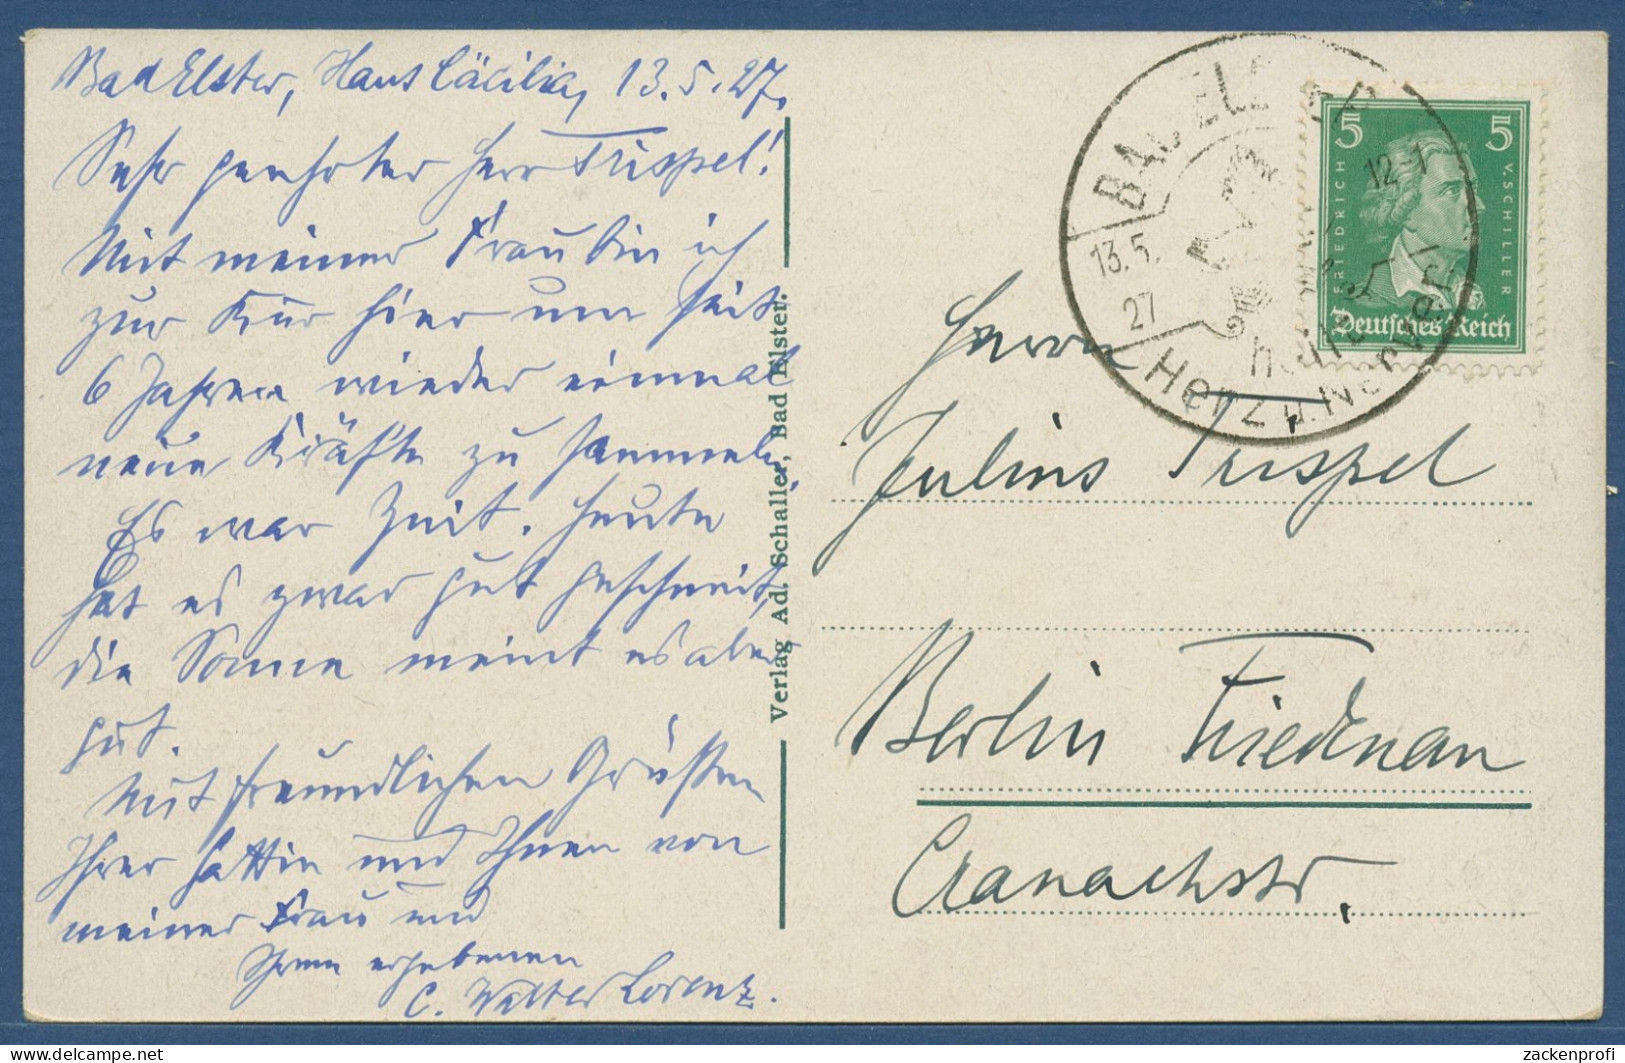 Bad Elster, Haus Cäcilia, 13.5.27.
Sehr geehrter Herr Trispel!
Mit meiner Frau bin ich
zur Kur hier um seit
6 Jahren wieder einmal
neue Kräfte zu sammeln.
Es war Zeit. Heute
hat es zwar gut geschneit,
die Sonne meint es aber
gut.
Mit freundlichen Grüßen
Ihrer Gattin und Ihnen von
meiner Frau und
Ihrem ergebenen
C. Walter Lorenz.
Verlag Ad. Schaller, Bad Elster.
BAD ELSTER
13.5.
27
12-1
heilt
Herz u. Nerven
5 5
FRIEDRICH
V. SCHILLER
Deutsches Reich
Herrn
Julius Trispel
Berlin Friedenau
Cranachstr.
zackenprofi